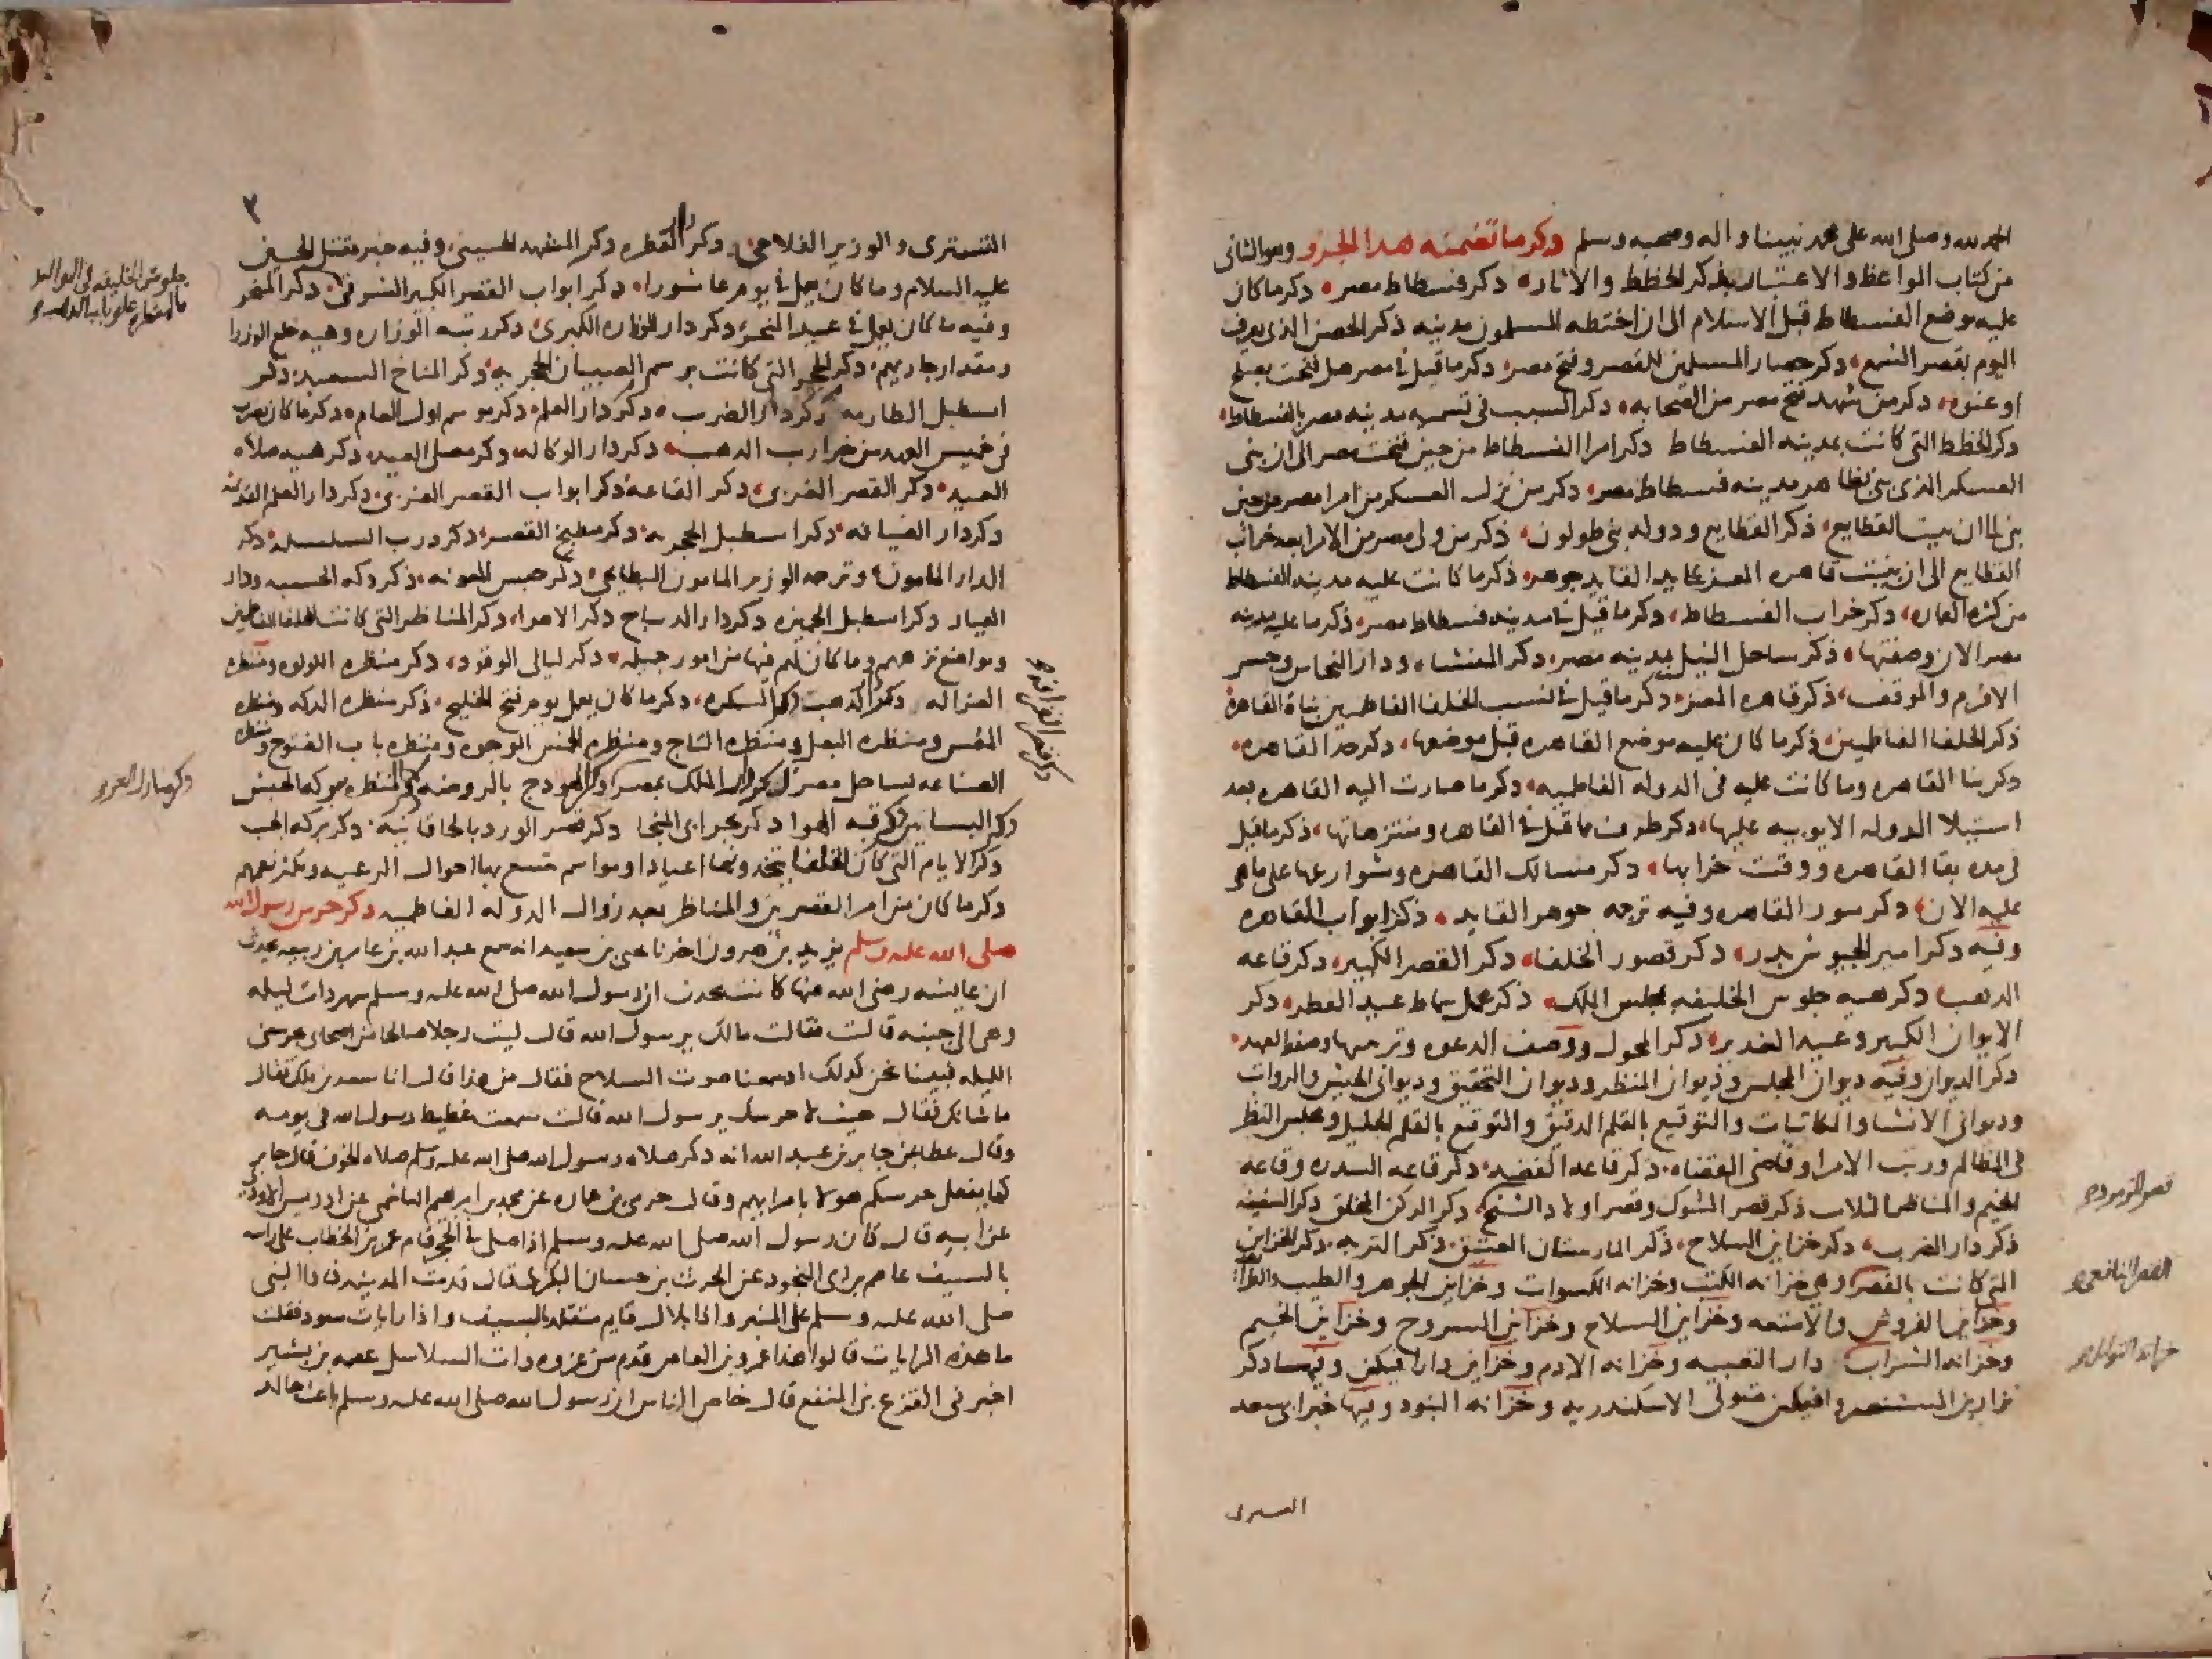 الحمد لله وصلى الله على محمد نبينا واله وصحبه وسلم وذكر ما تضمنه هدا الجزو وهو الثانى
من كتاب المواعظ والاعتبار بذكر الخطط والاثار دكر فسطاط مصر دكر ما كان
عليه موضع الفسطاط قبل الاسلام الى ان اختطه المسلمون مدينه ذكر الحصن الذى يعرف
اليوم بقصر الشمع دكر حصار المسلمين للقصر وفتح مصر دكر ما قيل فى مصر هل فتحت بصلح
او عنوه دكر من شهد فتح مصر من الصحابه دكر السبب فى تسميه مدينه مصر بالفسطاط
دكر الخطط التى كانت بمدينه الفسطاط دكر امرا الفسطاط من حين فتحت مصر الى ان بنى
العسكر الذى بنى بظاهر مدينه فسطاط مصر دكر من نزل العسكر من امرا مصر من حين
بنى الى ان بنيت القطايع ذكر القطايع ودوله بنى طولون ذكر من ولى مصر من الامرا بعد خراب
القطايع الى ان بنيت قاهره المعز على يد القايد جوهر ذكر ما كانت عليه مدينه الفسطاط
من كثره العماره دكر خراب الفسطاط دكر ما قيل فى مدينه فسطاط مصر ذكر ما عليه مدينه
مصر الان وصفتها ذكر ساحل النيل بمدينه مصر دكر المنشاه ودار النحاس وجسر
الافرم والموقف ذكر قاهره المعز دكر ما قيل فى نسب الخلفا الفاطميين بناة القاهرة
ذكر الخلفا الفاطميين ذكر ما كان عليه موضع القاهره قبل موضعها دكر حد القاهره
دكر بنا القاهره وما كانت عليه فى الدوله الفاطميه دكر ما صارت اليه القاهره بعد
استيلا الدوله الايوبيه عليها دكر طرف ما قيل فى القاهره ومنتزهاتها ذكر ما قيل
فى مده بقا القاهره ووقت خرابها دكر مسالك القاهره وشوارعها على ما هى
عليه الان دكر سور القاهره وفيه ترجمه جوهر القايد ذكر ابواب القاهره
وفيه دكر امير الجيوش بدر دكر قصور الخلفا دكر القصر الكبير دكر قاعه
الدهب دكر هيه جلوس الخليفه بمجلس الملك ذكر عمل سماط عيد الفطر دكر
الايوان الكبير وعيد الغدير دكر المحول ووصف الدعوه وترتيبها وصفه العهد
دكر الديوان وفيه ديوان المجلس وديوان النظر وديوان التحقيق وديوانى الجيش والرواتب
وديوانى الانشا والمكاتبات والتوقيع بالقلم الدقيق والتوقيع بالقلم الجليل ومجلس النظر
فى المظالم ورتب الامرا وقاضى القضاه ذكر قاعه الفضه دكر قاعه السدره وقاعه
الخيم والمناظر الثلاث ذكر قصر الشوك وقصر اولاد الشيخ دكر الركن المخلق دكر السقيفه
ذكر دار الضرب دكر خزاين السلاح ذكر المارستان العتيق ذكر التربه دكر الخزاين
التى كانت بالقصر وهى خزانه الكتب وخزانه الكسوات وخزاين الجوهر والطيب والطرايف
وخزاين الفروش والامتعه وخزاين السلاح وخزاين السروج وخزاين الخيم
وخزانه الشراب دار التعبيه وخزانه الادم وخزاين دار افتكين وفيها دكر
نزار بن المستنصر وافتكين متولى الاسكندريه وخزانه البنود وفيها خبر ابى سعد
التسترى
التسترى والوزير الفلاحى دكر دار القطره دكر المشهد الحسينى وفيه خبر مقتل الحسين
عليه السلام وما كان يعمل فى يوم عاشورا دكر ابواب القصر الكبير الشرقى دكر المنحر
وفيه ما كان يعمل فى عيد النحر دكر دار الوزاره الكبرى دكر رتبه الوزاره وهيه خلع الوزرا
ومقدار جاريهم دكر الحجر التى كانت برسم الصبيان الحجريه دكر المناخ السعيد دكر
اسطبل الطارمه دكر دار الضرب دكر دار العلم دكر موسم اول العام دكر ما كان يضرب
فى خميس العهد من خراريب الدهب دكر دار الوكاله دكر مصلى العيد دكر هيه صلاه
العيد دكر القصر الغربى دكر القاعه دكر ابواب القصر الغربى دكر دار العلم القديمه
دكر دار الضيافه دكر اسطبل الحجريه دكر مطبخ القصر دكر درب السلسله دكر
الدار المامونيه وترجمه الوزير المامون البطايحى دكر حبس المعونه ذكر دكه الحسبه ودار
العيار دكر اسطبل الجميزه دكر دار الديباج دكر الاهرا دكر المناظر التى كانت للخلفا الفاطميين
ومواضع نزههم وما كان لهم فيها من امور جميله دكر ليالى الوقود دكر منظره اللولوه ومنظره
الغزاله دكر الدهب السكره دكر ما كان يعمل يوم فتح الخليج ذكر منظره الدكه ومنظره
المقس ومنظره البعل ومنظره التاج ومنظره الخمس الوجوه ومنظره باب الفتوح ومنظره
الصناعه بساحل مصر دكر دار الملك بمصر دكر الهودج بالروضه دكر منظره بركه الحبش
دكر البساتين دكر قبه الهوا دكر بحر ابى المنجا دكر قصر الورد بالخاقانيه دكر بركه الجب
دكر الايام التى كان الخلفا يتخدونها اعيادا ومواسم تتسع بها احوال الرعيه وتكثر نعمهم
دكر ما كان من امر القصرين والمناظر بعد زوال الدوله الفاطميه دكر حرس رسول الله
صلى الله عليه وسلم يزيد بن هرون اخبرنا يحيى بن سعيد انه سمع عبد الله بن عامر بن ربيعه يحدث
ان عايشه رضى الله عنها كانت تحدث ان رسول الله صلى الله عليه وسلم سهر دات ليله
وهى الى جنبه قالت فقالت مالك يرسول الله قال ليت رجلا صالحا من اصحابى يحرسنى
الليله فبينا نحن كدلك اد سمعنا صوت السلاح فقال من هذا قال انا سعد بن ملك فقال
ما شانك فقال جيت لاحرسك يرسول الله قالت سمعت غطيط رسول الله فى نومه
وقال عطا عن جابر بن عبد الله انه دكر صلاه رسول الله صلى الله عليه وسلم صلاه الخوف قال جابر
كما يفعل حرسكم هولا بامرايهم وقال حرمى بن عماره عن محمد بن ابرهيم الهاشمى عن ادريس الاودى
عن ابيه قال كان رسول الله صلى الله عليه وسلم اذا صلى فى الحجر قام عمر بن الخطاب على راسه
بالسيف عاصم بن ابى النجود عن الحرث بن حسان البكرى قال قدمت المدينه فاذا النبى
صلى الله عليه وسلم على المنبر واذا بلال قايم متقلد بالسيف واذا رايات سود فقلت
ما هذه الرايات قالوا هذا عمرو بن العاص قدم من غزوه دات السلاسل عصمه بن بشير
اخبرنى الفزع بن المنقع قال خاض الناس ان رسول الله صلى الله عليه وسلم باعث خالد